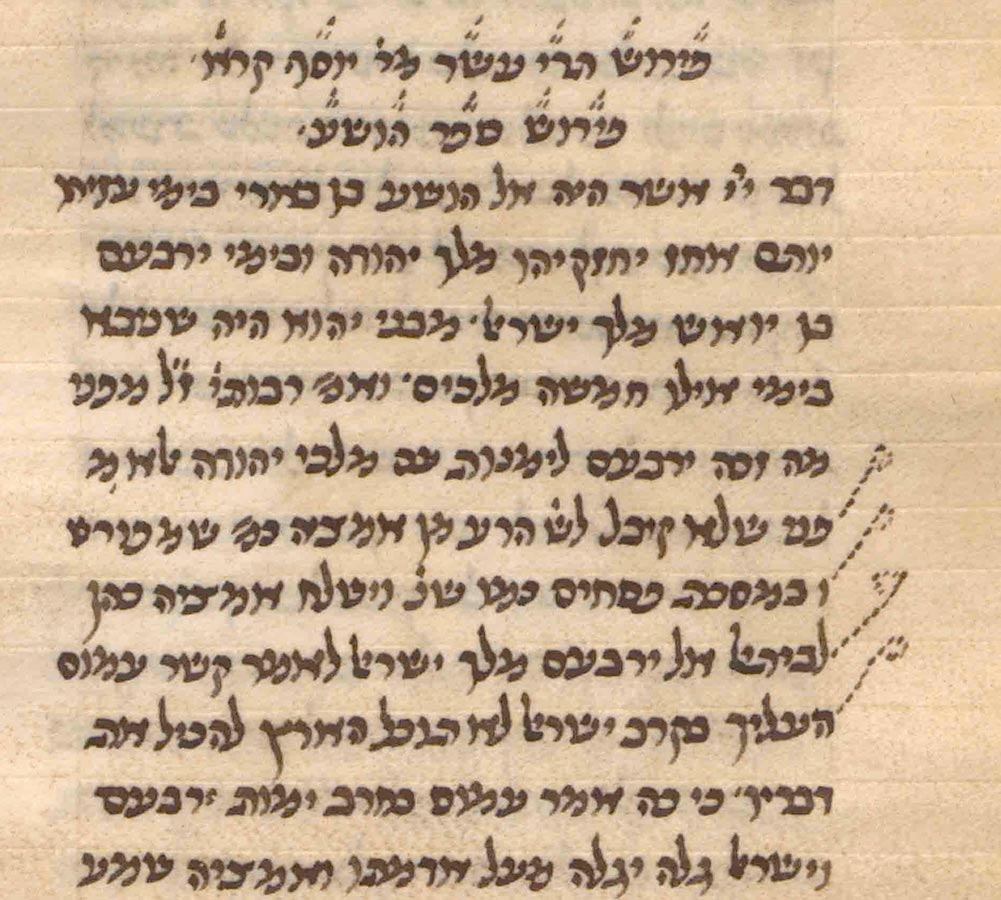 פירוש תרי עשר מר' יוסף קרא'
פירוש ספר הושע'
דבר י"י אשר היה אל הושע בן בארי בימי עזיה
יותם אחז יחזקיהו מלך יהודה ובימי ירבעם
בן יואש מלך ישראל' מבני יהוא היה שנבא
בימי אילו חמשה מלכים' ואמ' רבותי' ז"ל מפני
מה זכה ירבעם לימנות עם מלכי יהודה לא מ
פני שלא קיבל לש' הרע מן אמציה כמ' שמפורש
ו במסכת פסחים כמו שנ' וישלח אמציה כהן
לביתאל אל ירבעם מלך ישראל לאמר קשר עמוס
העליך בקרב ישראל לא תוכל הארץ להכיל את
דבריך' כי כה אמר עמוס בחרב ימות ירבעם
וישראל גלה יגלה מעל אדמתו ואמציה שמע